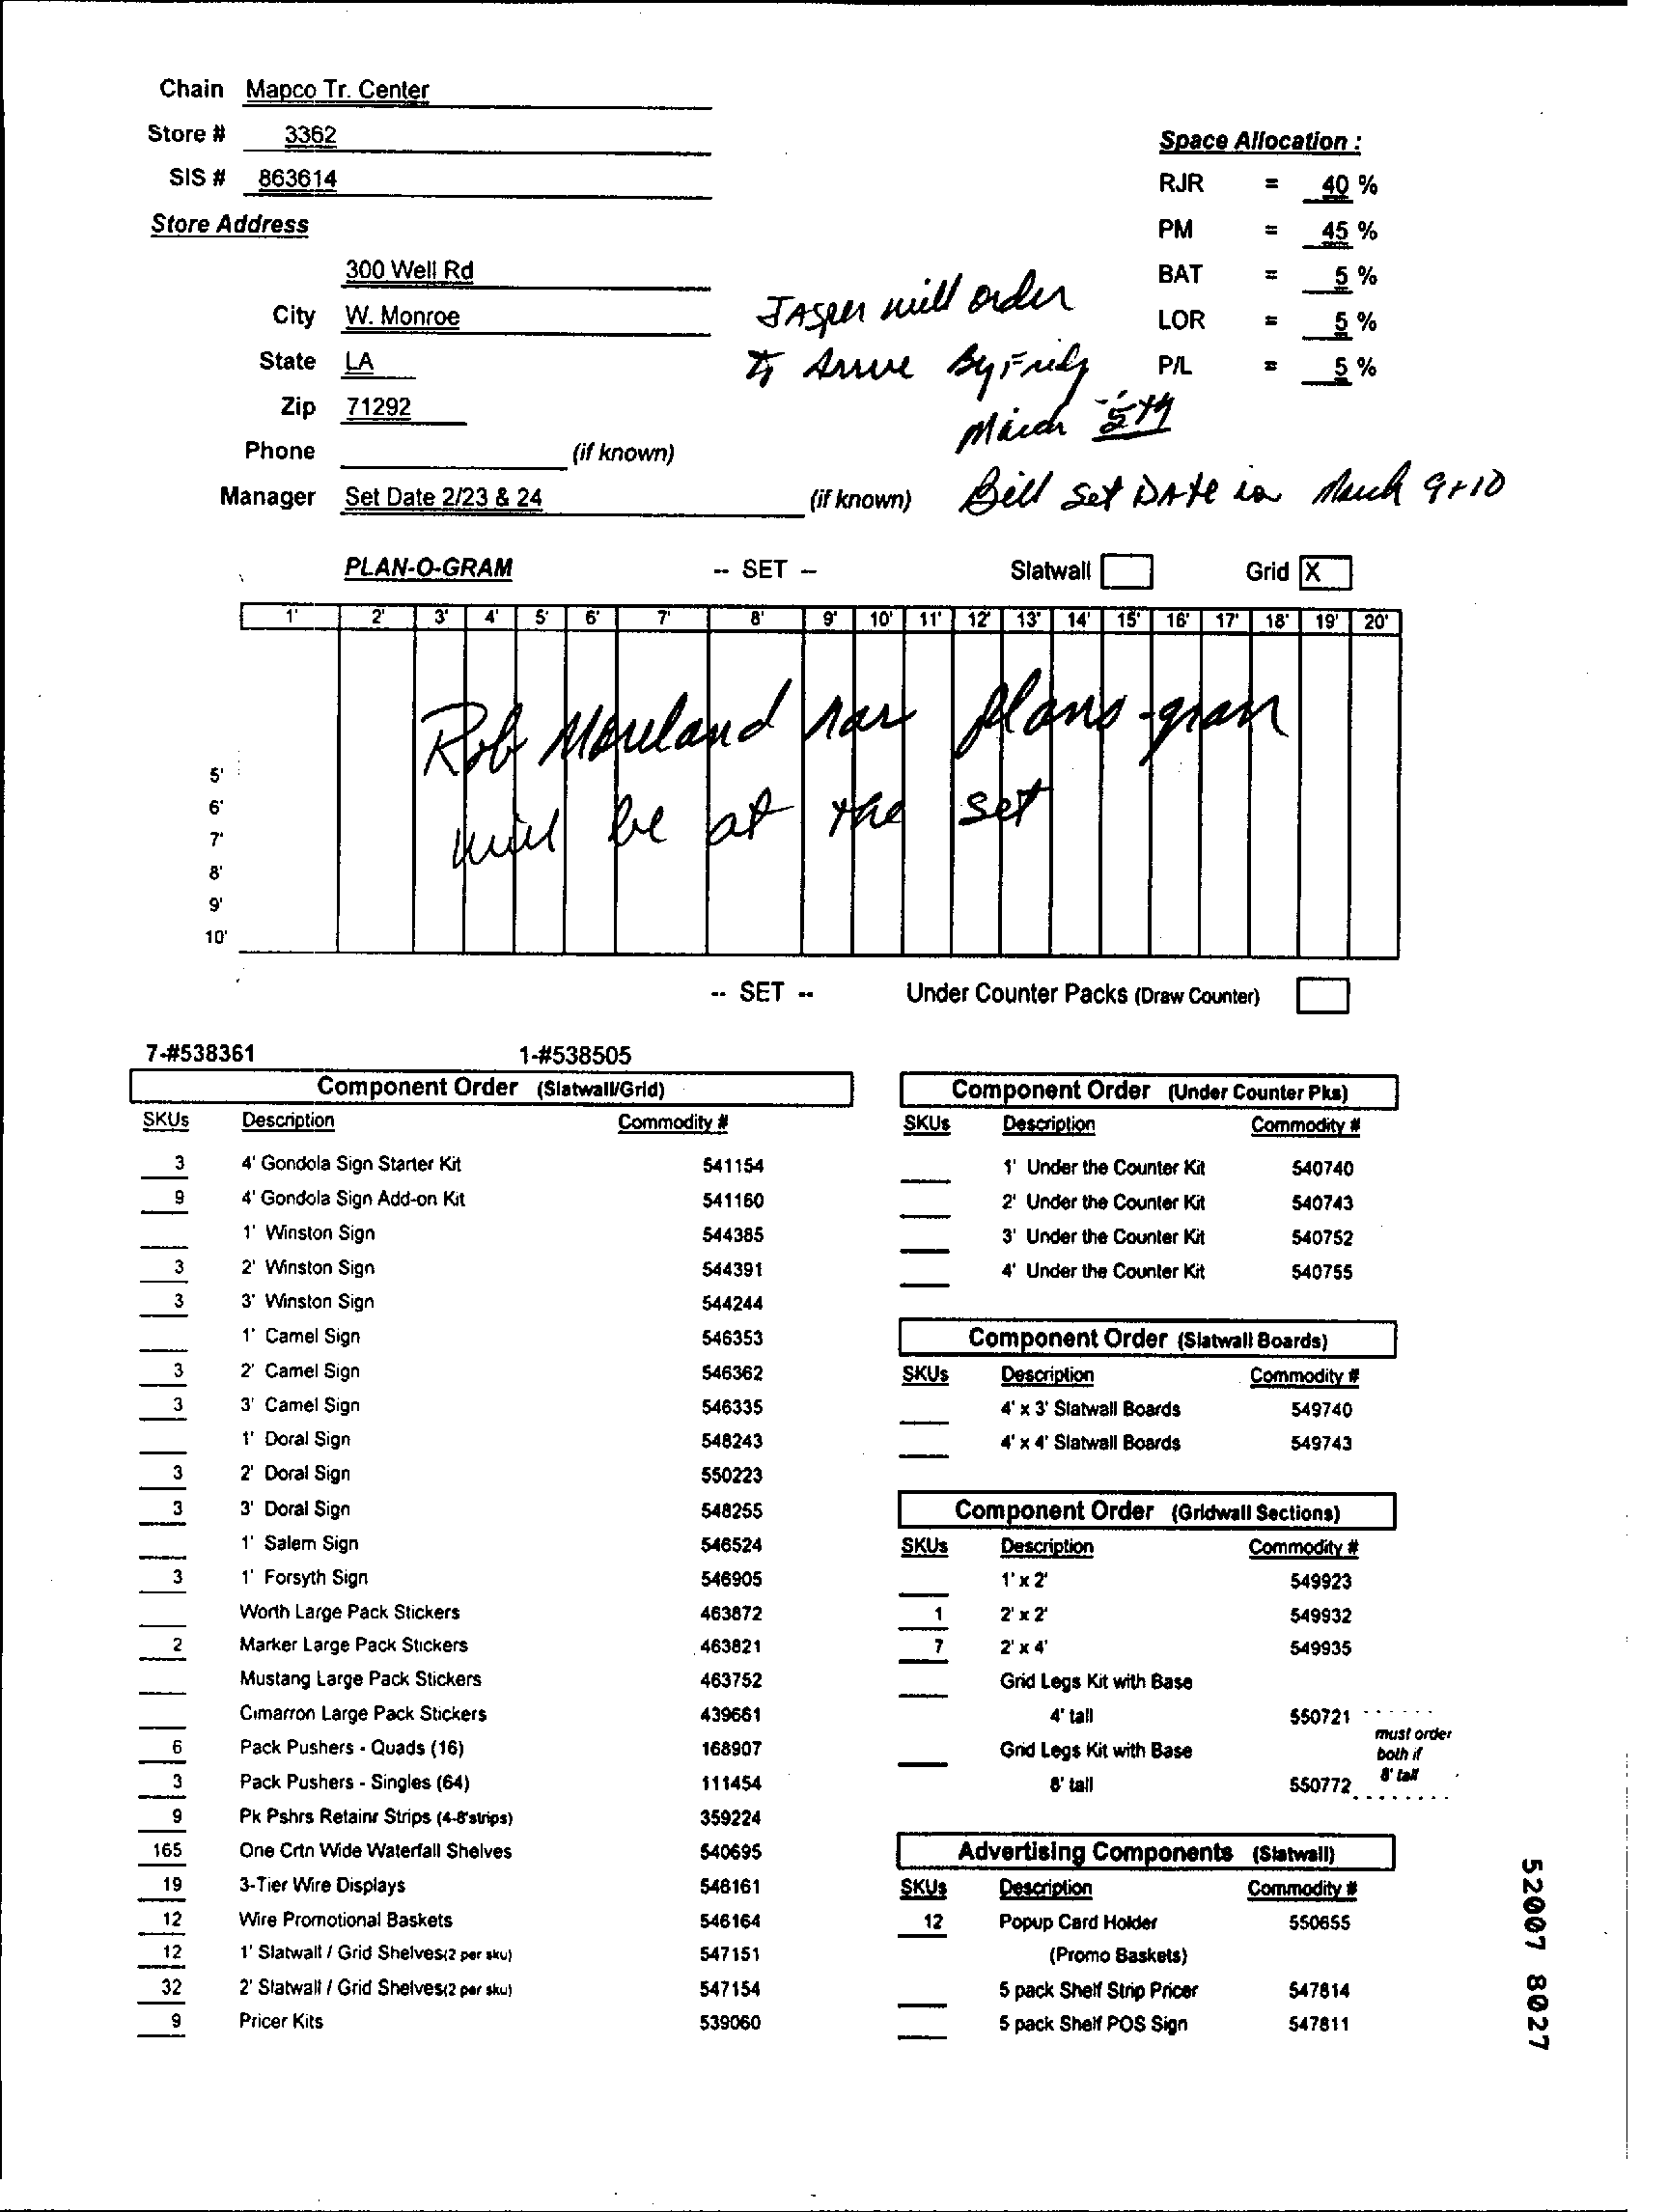 Chain Mapco Tr. Center
Store # 3362
SIS # 863614
Store Address
300 Well Rd
City W. Monroe
State LA
Zip 71292
Phone (if known)
Manager Set Date 2/23 & 24 (if known)
Space Allocation :
RJR = 40 %
PM = 45 %
BAT = 5 %
LOR = 5 %
P/L = 5 %
JASper will order
to Arrive By Friday
March 5th
Bill Set DAte is March 9+10
PLAN-O-GRAM -- SET -- Slatwall Grid X
1' 2' 3' 4' 5' 6' 7' 8' 9' 10' 11' 12' 13' 14' 15' 16' 17' 18' 19' 20'
Rob Moreland has plano-gram
will be at the set
5'
6'
7'
8'
9'
10'
-- SET -- Under Counter Packs (Draw Counter)
7-#538361 1-#538505
Component Order (Slatwall/Grid)
SKUs Description Commodity #
3 4' Gondola Sign Starter Kit 541154
9 4' Gondola Sign Add-on Kit 541160
1' Winston Sign 544385
3 2' Winston Sign 544391
3 3' Winston Sign 544244
1' Camel Sign 546353
3 2' Camel Sign 546362
3 3' Camel Sign 546335
1' Doral Sign 548243
3 2' Doral Sign 550223
3 3' Doral Sign 548255
1' Salem Sign 546524
3 1' Forsyth Sign 546905
Worth Large Pack Stickers 463872
2 Marker Large Pack Stickers 463821
Mustang Large Pack Stickers 463752
Cimarron Large Pack Stickers 439661
6 Pack Pushers - Quads (16) 168907
3 Pack Pushers - Singles (64) 111454
9 Pk Pshrs Retainr Strips (4-8'strips) 359224
165 One Crtn Wide Waterfall Shelves 540695
19 3-Tier Wire Displays 548161
12 Wire Promotional Baskets 546164
12 1' Slatwall / Grid Shelves(2 per sku) 547151
32 2' Slatwall / Grid Shelves(2 per sku) 547154
9 Pricer Kits 539060
Component Order (Under Counter Pks)
SKUs Description Commodity #
1' Under the Counter Kit 540740
2' Under the Counter Kit 540743
3' Under the Counter Kit 540752
4' Under the Counter Kit 540755
Component Order (Slatwall Boards)
SKUs Description Commodity #
4' x 3' Slatwall Boards 549740
4' x 4' Slatwall Boards 549743
Component Order (Gridwall Sections)
SKUs Description Commodity #
1' x 2' 549923
1 2' x 2' 549932
7 2' x 4' 549935
Grid Legs Kit with Base
4' tall 550721
Grid Legs Kit with Base
8' tall 550772
must order
both if
8' tall
Advertising Components (Slatwall)
SKUs Description Commodity #
12 Popup Card Holder 550655
(Promo Baskets)
5 pack Shelf Strip Pricer 547814
5 pack Shelf POS Sign 547811
52007 8027